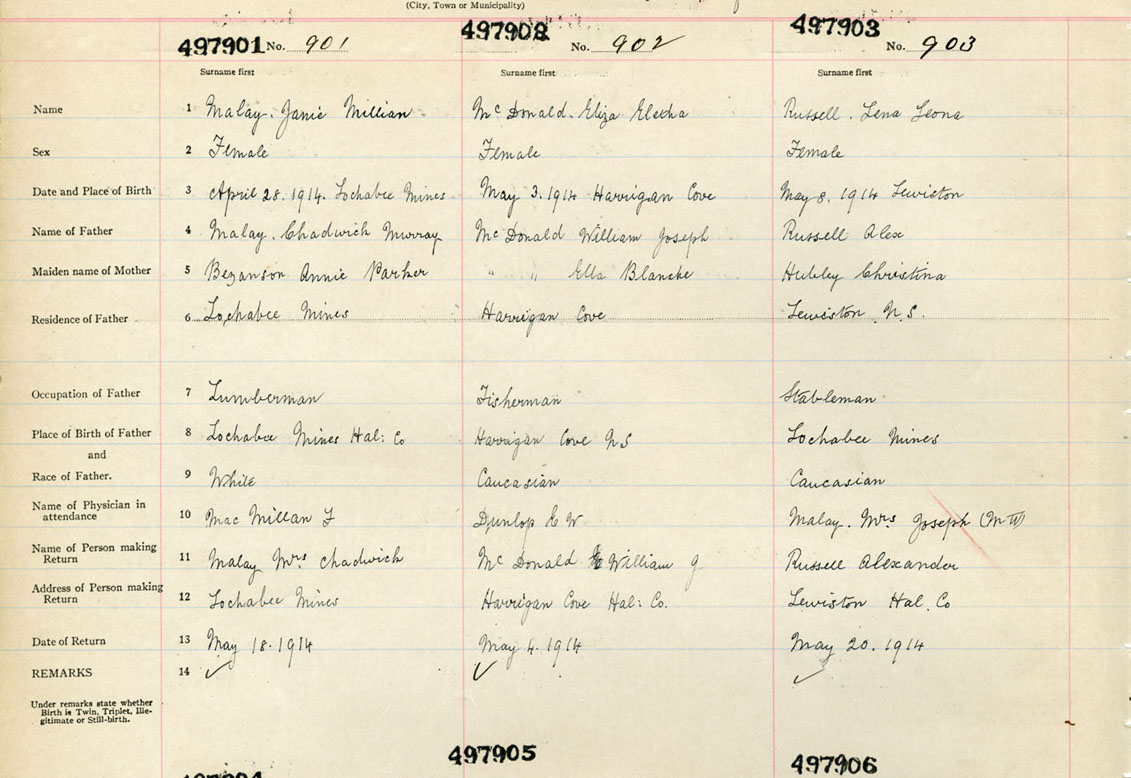 (City, Town or Municipality)
497901 No. 901 497902 No. 902 497903 No. 903
Surname first Surname first Surname first
Name 1 Malay. Janie Millian Mc Donald. Eliza Eletha Russell. Lena Leona
Sex 2 Female Female Female
Date and Place of Birth 3 April 28. 1914. Lochabee Mines May 3. 1914 Harrigan Cove May 8. 1914 Lewiston
Name of Father 4 Malay. Chadwick Murray Mc Donald William Joseph Russell Alex
Maiden name of Mother 5 Bezanson Annie Parker " " Ella Blanche Hubley Christina
Residence of Father 6 Lochabee Mines Harrigan Cove Lewiston N.S.
Occupation of Father 7 Lumberman Fisherman Stableman
Place of Birth of Father 8 Lochabee Mines Hal: Co Harrigan Cove NS Lochabee Mines
and
Race of Father. 9 White Caucasian Caucasian
Name of Physician in
attendance 10 Mac Millan F Dunlop E W Malay. Mrs Joseph (M W)
Name of Person making
Return 11 Malay Mrs Chadwick Mc Donald William J Russell Alexander
Address of Person making
Return 12 Lochabee Mines Harrigan Cove Hal: Co. Lewiston Hal. Co
Date of Return 13 May 18. 1914 May 4. 1914 May 20. 1914
REMARKS 14 ✓ ✓ ✓
Under remarks state whether
Birth is Twin, Triplet, Ille-
gitimate or Still-birth.
497905 497906